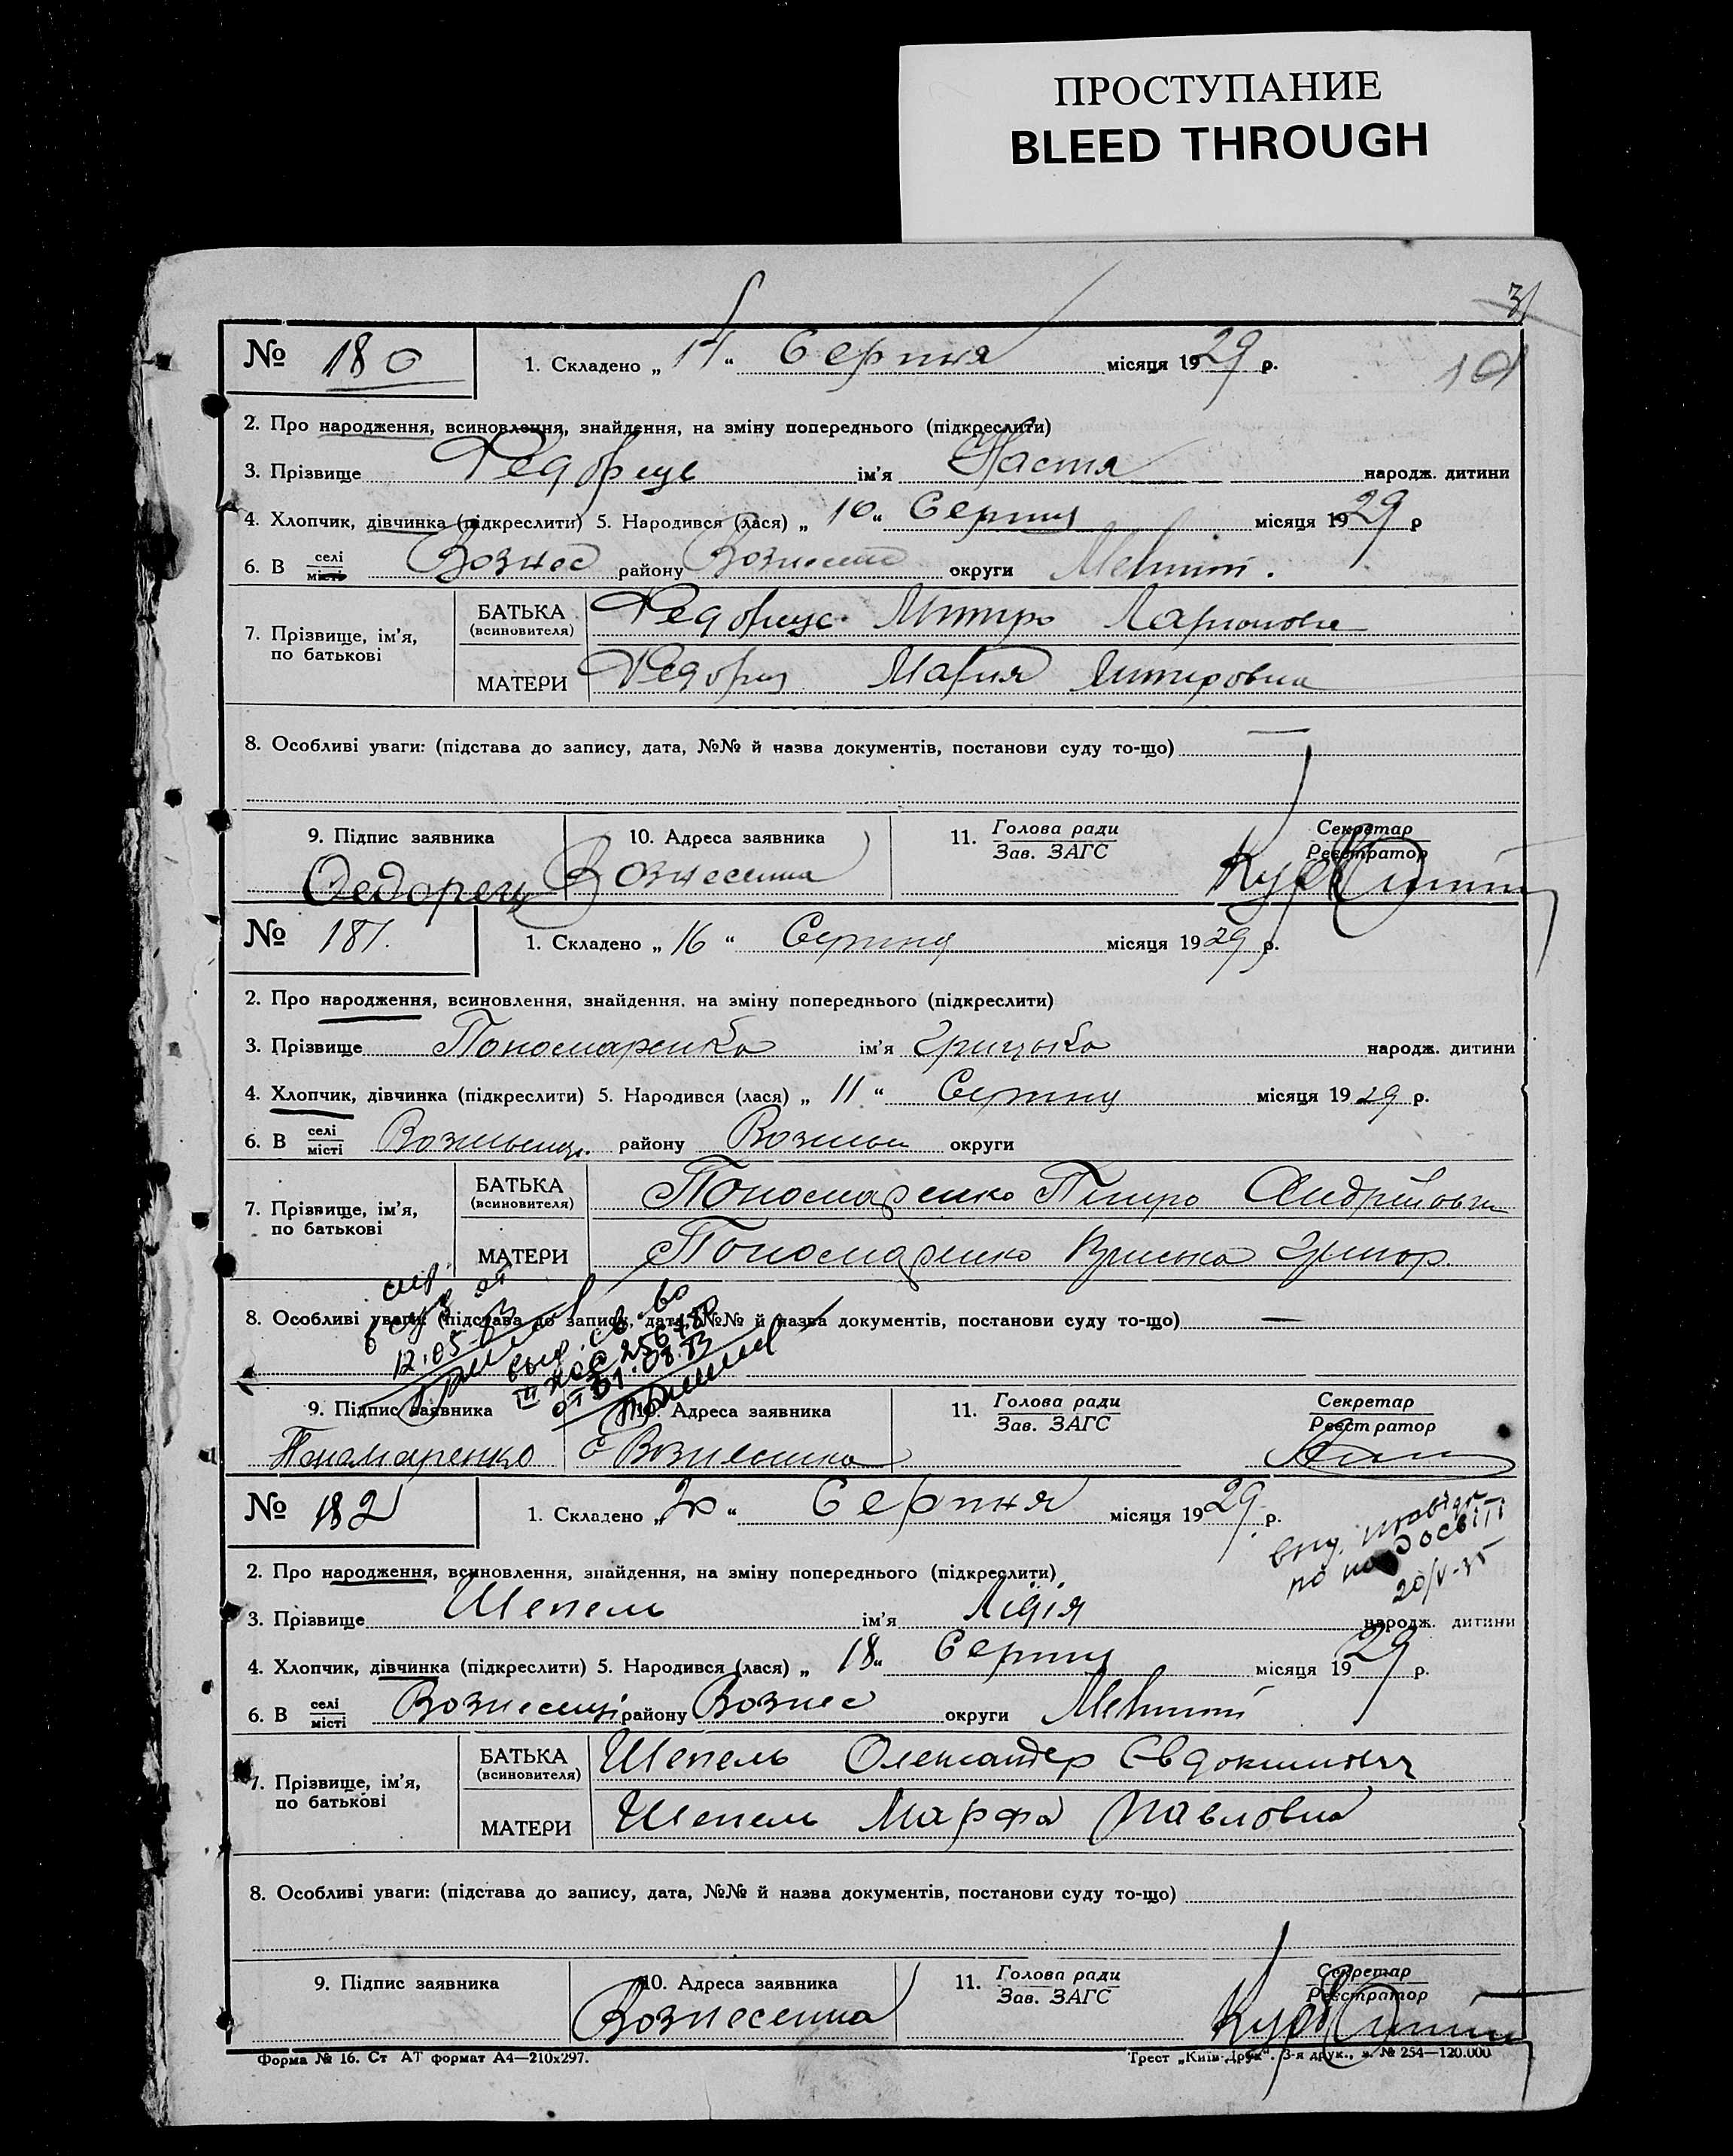 ПРОСТУПАНИЕ
BLEED THROUGH
31
101
№ 180 1. Складено „ 14 “ Серпня місяця 1929 р.
2. Про народження, всиновлення, знайдення, на зміну попереднього (підкреслити)
3. Прізвище Федорець ім’я Настя народж. дитини
4. Хлопчик, дівчинка (підкреслити) 5. Народився (лася) „ 10 “ Серпня місяця 1929 р
6. В селі місті Вознес району округи Меліт.
7. Прізвище, ім’я, по батькові
БАТЬКА (всиновителя) Федорець Митро Ларионов
МАТЕРИ Федорец Мария
8. Особливі уваги: (підстава до запису, дата, №№ й назва документів, постанови суду то-що) —
9. Підпис заявника 10. Адреса заявника 11. Голова ради Зав. ЗАГС Секретар Реєстратор
Федорец Вознесенка
№ 181. 1. Складено „ 16 “ Серпня місяця 1929 р.
2. Про народження, всиновлення, знайдення, на зміну попереднього (підкреслити)
3. Прізвище Пономаренко ім’я Грицько народж. дитини
4. Хлопчик, дівчинка (підкреслити) 5. Народився (лася) „ 11 “ Серпня місяця 1929 р.
6. В селі місті району округи
7. Прізвище, ім’я, по батькові
БАТЬКА (всиновителя) Пономаренко Петро Андрійович
МАТЕРИ Пономаренко Григор.
8. Особливі уваги: (підстава до запису, дата, №№ й назва документів, постанови суду то-що) —
12.05.83
9. Підпис заявника 10. Адреса заявника 11. Голова ради Зав. ЗАГС Секретар Реєстратор
Понамаренко с Вознесенка
№ 182 1. Складено „ 20 “ Серпня місяця 1929 р.
2. Про народження, всиновлення, знайдення, на зміну попереднього (підкреслити)
20/V-35
3. Прізвище Шепель ім’я Лідія народж. дитини
4. Хлопчик, дівчинка (підкреслити) 5. Народився (лася) „ 18 “ Серпня місяця 1929 р.
6. В селі місті Вознесенці району Вознес округи Меліт
7. Прізвище, ім’я, по батькові
БАТЬКА (всиновителя) Шепель Олександер Євдокимович
МАТЕРИ Шепель Марфа Павловна
8. Особливі уваги: (підстава до запису, дата, №№ й назва документів, постанови суду то-що)
9. Підпис заявника 10. Адреса заявника 11. Голова ради Зав. ЗАГС Секретар Реєстратор
Вознесенка
Форма № 16. Ст АТ формат А4—210х297. Трест „Київ-Друк“. 3-я друк., з. № 254—120.000